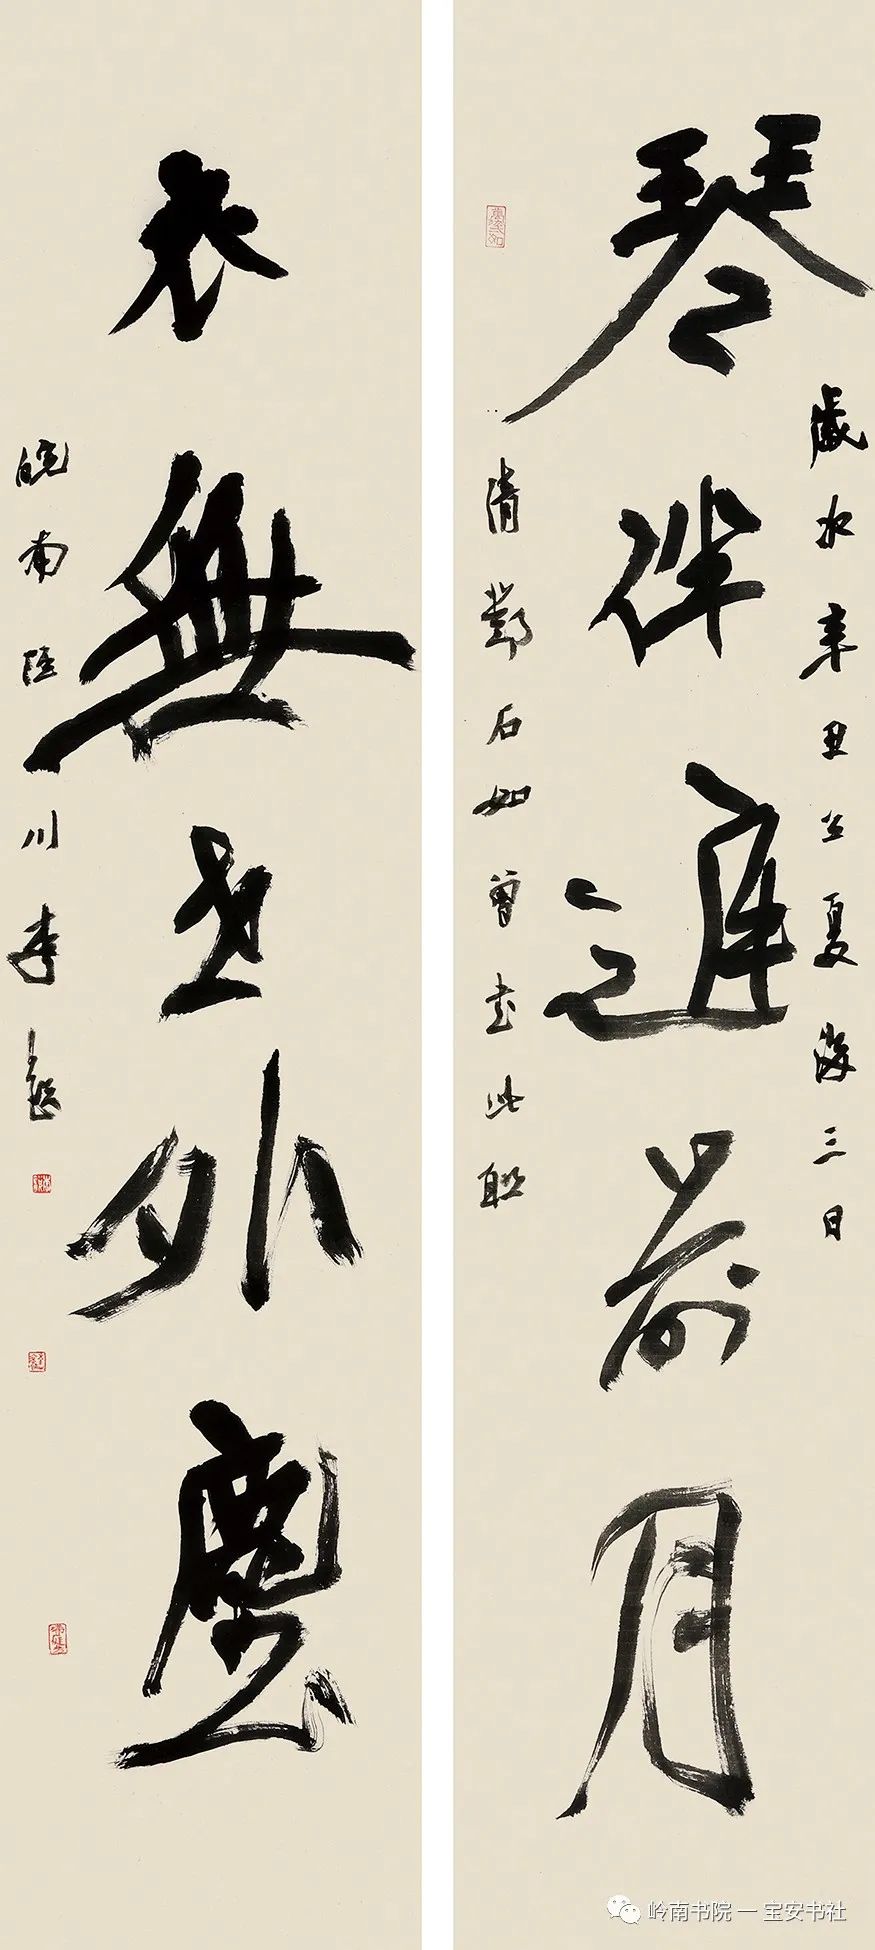 琴伴庭前月
歲次辛丑立夏後三日
清鄧石如曾書此聯
衣無世外塵
皖南涇川李
岭南书院一宝安书社